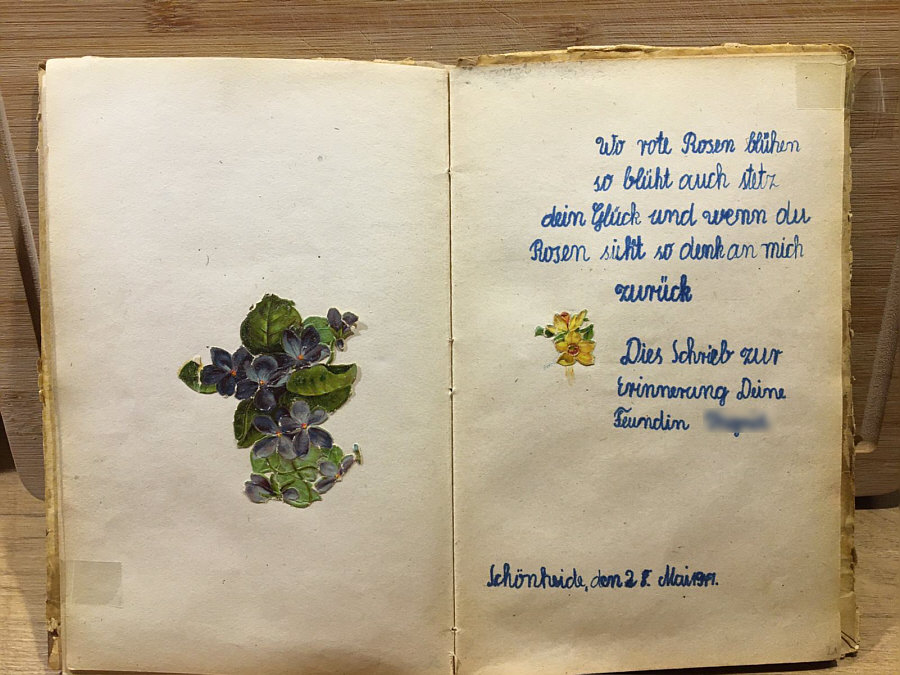 Wo rote Rosen blühen
so blüht auch stetz
dein Glück und wenn du
Rosen sieht so denk an mich
zurück
Dies Schrieb zur
Erinnerung Deine
Feundin
Schönheide, den 28. Mai